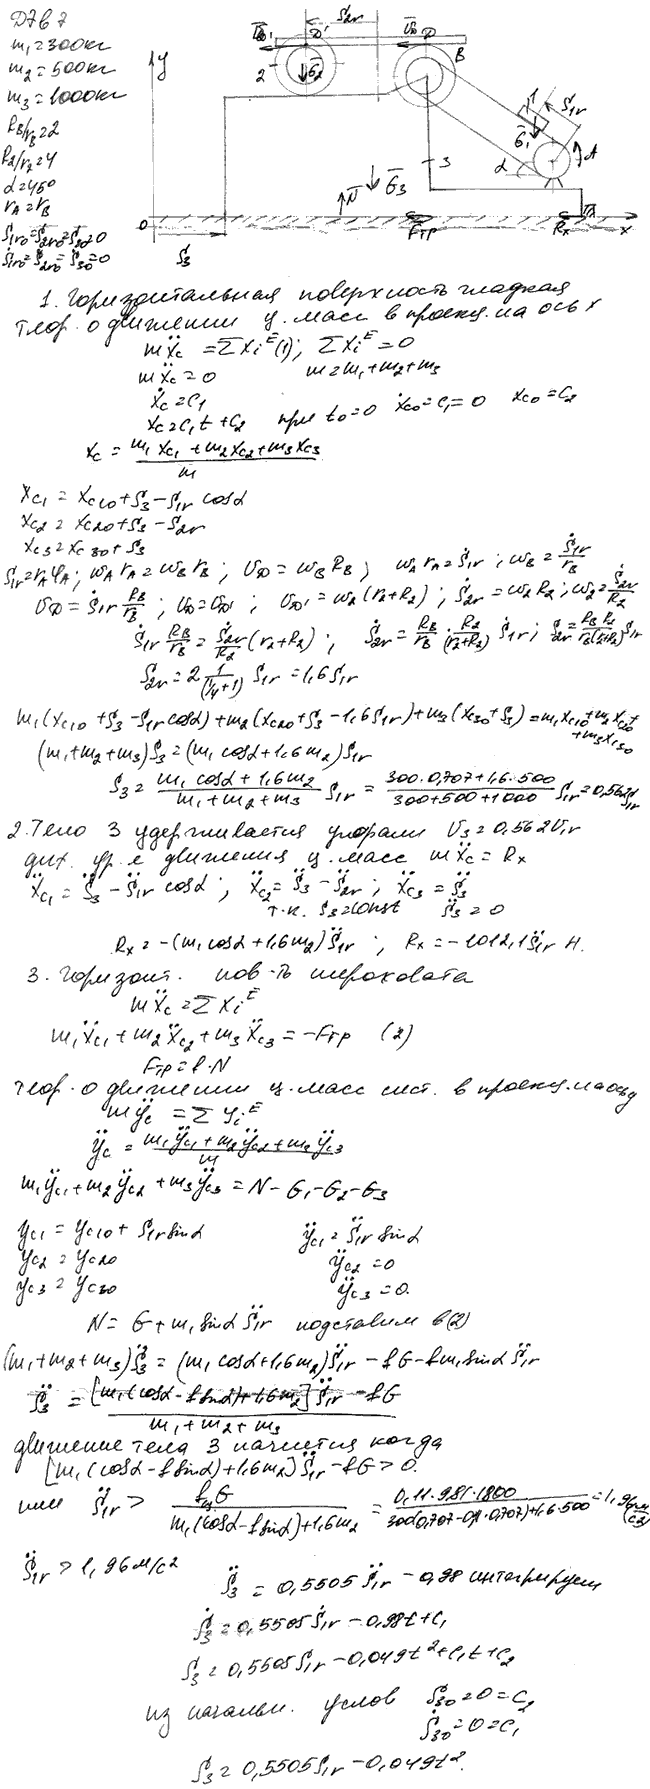 Д7В7
m₁=300кг
m₂=500кг
m₃=1000кг
R_B/r_B=2
R₂/r₂=4
α=45°
r_A=r_B
S₁r₀=S₂r₀=S₃₀=0
Ṡ₁r₀=Ṡ₂r₀=Ṡ₃₀=0
y S₂r D' D B 2 G₂ 1 S₁r G₁ A α 3 N G₃ O Fтр Rx x S₃
1. Горизонтальная поверхность гладкая
Теор. о движении ц. масс в проекц. на ось x
mẍc = ΣXiᴱ (1); ΣXiᴱ = 0
mẍc = 0 m=m₁+m₂+m₃
ẋc = C₁
xc=C₁t+C₂ при t₀=0 ẋc₀=C₁=0 xc₀=C₂
xc = (m₁xc₁+m₂xc₂+m₃xc₃)/m
xc₁ = xc₁₀+S₃-S₁r cosα
xc₂ = xc₂₀+S₃-S₂r
xc₃ = xc₃₀+S₃
S₁r=r_Aφ_A; ω_A r_A=ω_B r_B; υ_D=ω_B R_B; ω_A r_A=Ṡ₁r; ω_B=Ṡ₁r/r_B
υ_D=Ṡ₁r R_B/r_B; υ_D=υ_D'; υ_D'=ω₂(r₂+R₂); Ṡ₂r=ω₂R₂; ω₂=Ṡ₂r/R₂
Ṡ₁r R_B/r_B = Ṡ₂r/R₂ (r₂+R₂); Ṡ₂r = R_B/r_B · R₂/(r₂+R₂) Ṡ₁r; S₂r = R_B R₂/(r_B(r₂+R₂)) S₁r
S₂r = 2 1/(1/4+1) S₁r = 1,6S₁r
m₁(xc₁₀+S₃-S₁r cosα)+m₂(xc₂₀+S₃-1,6S₁r)+m₃(xc₃₀+S₃)=m₁xc₁₀+m₂xc₂₀+m₃xc₃₀
(m₁+m₂+m₃)S₃=(m₁cosα+1,6m₂)S₁r
S₃ = (m₁cosα+1,6m₂)/(m₁+m₂+m₃) S₁r = (300·0,707+1,6·500)/(300+500+1000) S₁r=0,562S₁r
2. Тело 3 удерживается упорами υ₃=0,562υ₁r
диф. ур-е движения ц. масс mẍc=Rx
ẍc₁=S̈₃-S̈₁r cosα; ẍc₂=S̈₃-S̈₂r; ẍc₃=S̈₃
т.к. S₃=const S̈₃=0
Rx=-(m₁cosα+1,6m₂)S̈₁r; Rx=-1012,1S̈₁r Н.
3. Горизонт. пов-ть шероховата
mẍc=ΣXiᴱ
m₁ẍc₁+m₂ẍc₂+m₃ẍc₃=-Fтр (2)
Fтр=f·N
Теор. о движении ц. масс сист. в проекц. на ось y
mÿc = Σyiᴱ
ÿc = (m₁ÿc₁+m₂ÿc₂+m₃ÿc₃)/m
m₁ÿc₁+m₂ÿc₂+m₃ÿc₃=N-G₁-G₂-G₃
yc₁=yc₁₀+S₁r sinα ÿc₁=S̈₁r sinα
yc₂=yc₂₀ ÿc₂=0
yc₃=yc₃₀ ÿc₃=0.
N=G+m₁sinα S̈₁r подставим в(2)
(m₁+m₂+m₃)S̈₃=(m₁cosα+1,6m₂)S̈₁r-fG-fm₁sinα S̈₁r
S̈₃ = ([m₁(cosα-f sinα)+1,6m₂]S̈₁r-fG)/(m₁+m₂+m₃)
движение тела 3 начнется когда
[m₁(cosα-f sinα)+1,6m₂]S̈₁r-fG>0.
или S̈₁r > fG/(m₁(cosα-f sinα)+1,6m₂) = 0,1·1·9,81·1800/(300(0,707-0,1·0,707)+1,6·500)=1,96(м/с2)
S̈₁r>1,96м/с²
S̈₃=0,5505S̈₁r-0,98 интегрируем
Ṡ₃=0,5505Ṡ₁r-0,98t+C₁
S₃=0,5505S₁r-0,049t²+C₁t+C₂
из начальн. услов S₃₀=0=C₂
Ṡ₃₀=0=C₁
S₃=0,5505S₁r-0,049t².